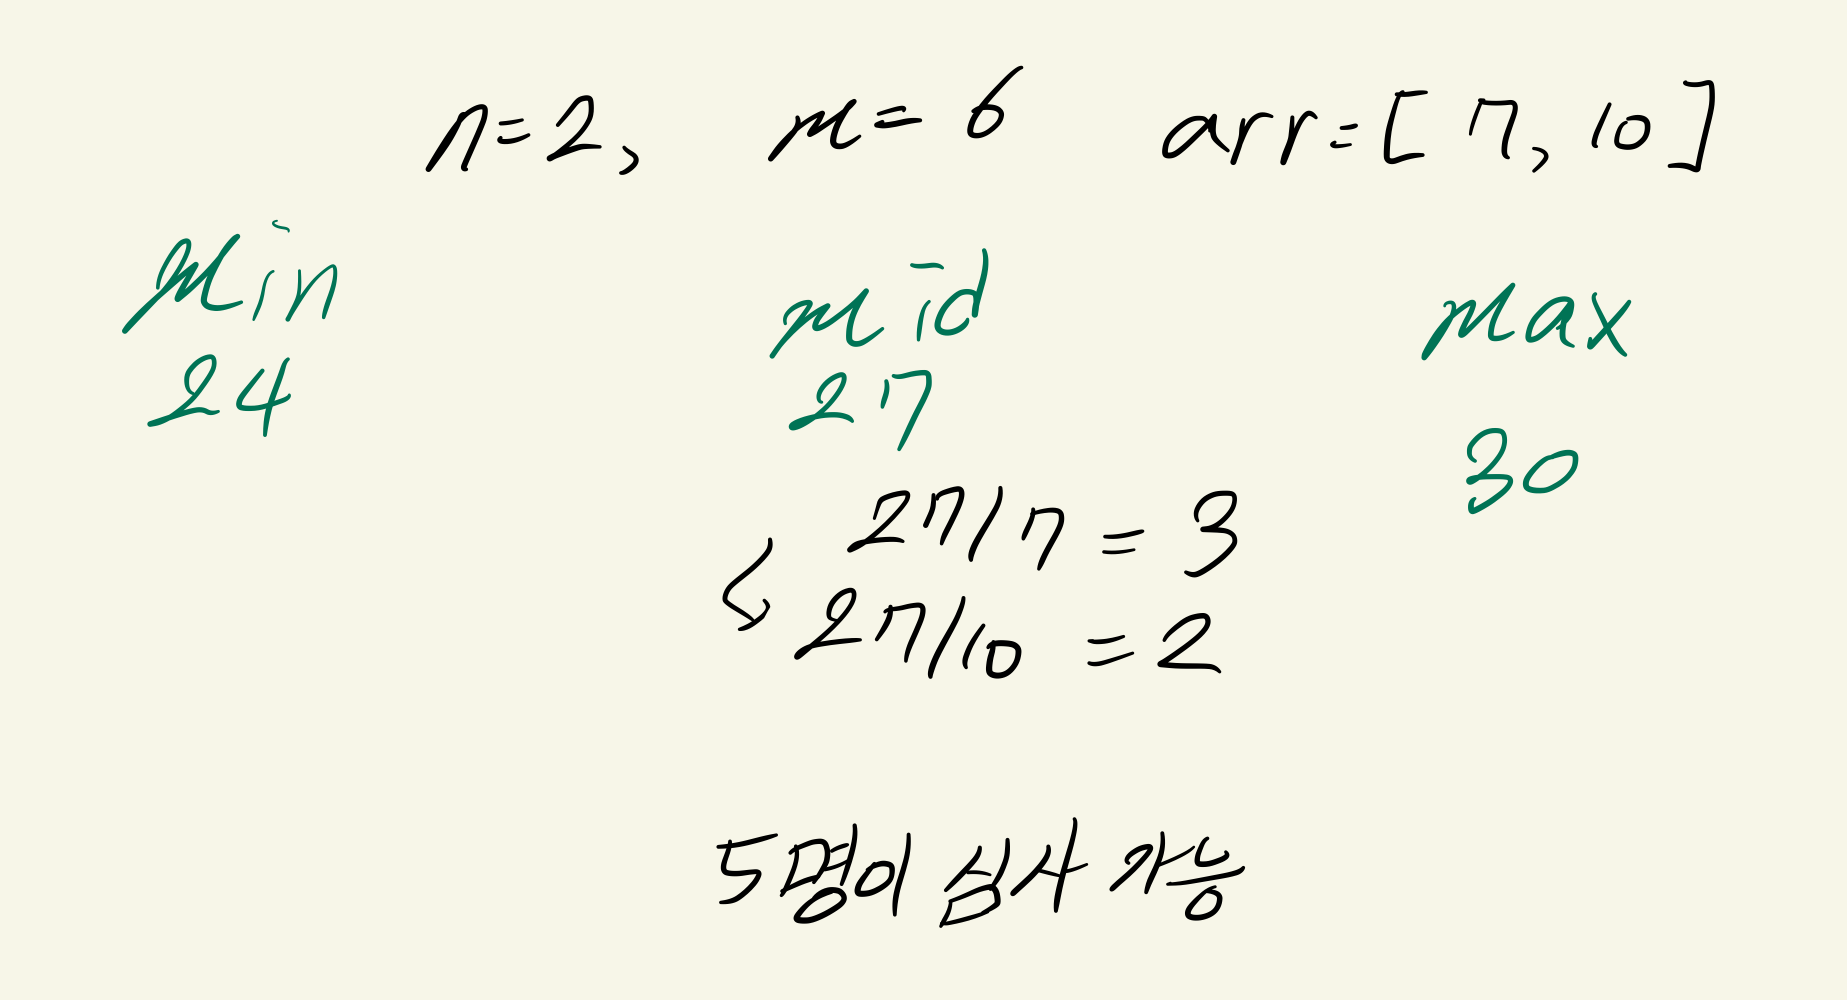 n=2, m=6 arr=[7,10]
min mid max
24 27 30
27/7 = 3
27/10 = 2
5명이 심사 가능